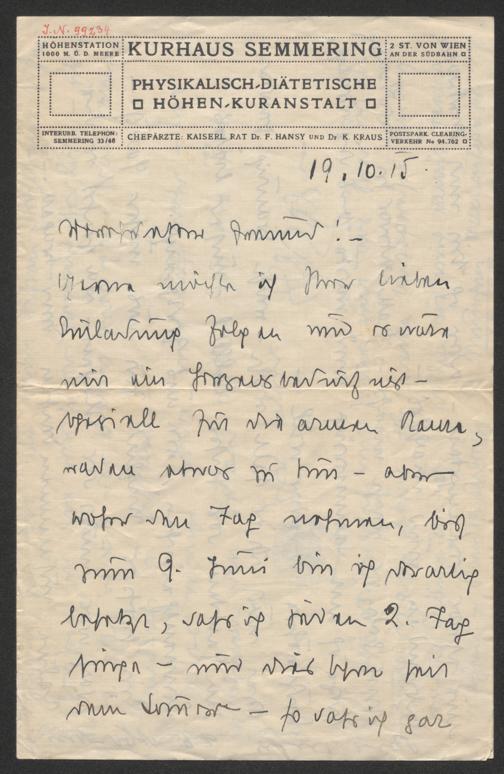 J. N. 99234
HÖHENSTATION
1000 M. Ü. D. MEERE
KURHAUS SEMMERING
2 ST. VON WIEN
AN DER SÜDBAHN
PHYSIKALISCH-DIÄTETISCHE
HÖHEN-KURANSTALT
INTERURB. TELEPHON:
SEMMERING 33/68
CHEFÄRZTE: KAISERL. RAT Dr. F. HANSY UND Dr. K. KRAUS
POSTSPARK. CLEARING-
VERKEHR No 94.762
19.10.15.
Freund! –
Gerne möchte ich Ihrer lieben
Einladung folgen und es wäre
mir ein Herzensbedürfnis –
speziell für die armen
etwas zu tun – aber
woher den Tag nehmen, bis
zum 9. Juni bin ich derartig
besetzt, dass ich jeden 2. Tag
singe – und dies schon seit
dem Sommer – so dass ich gar